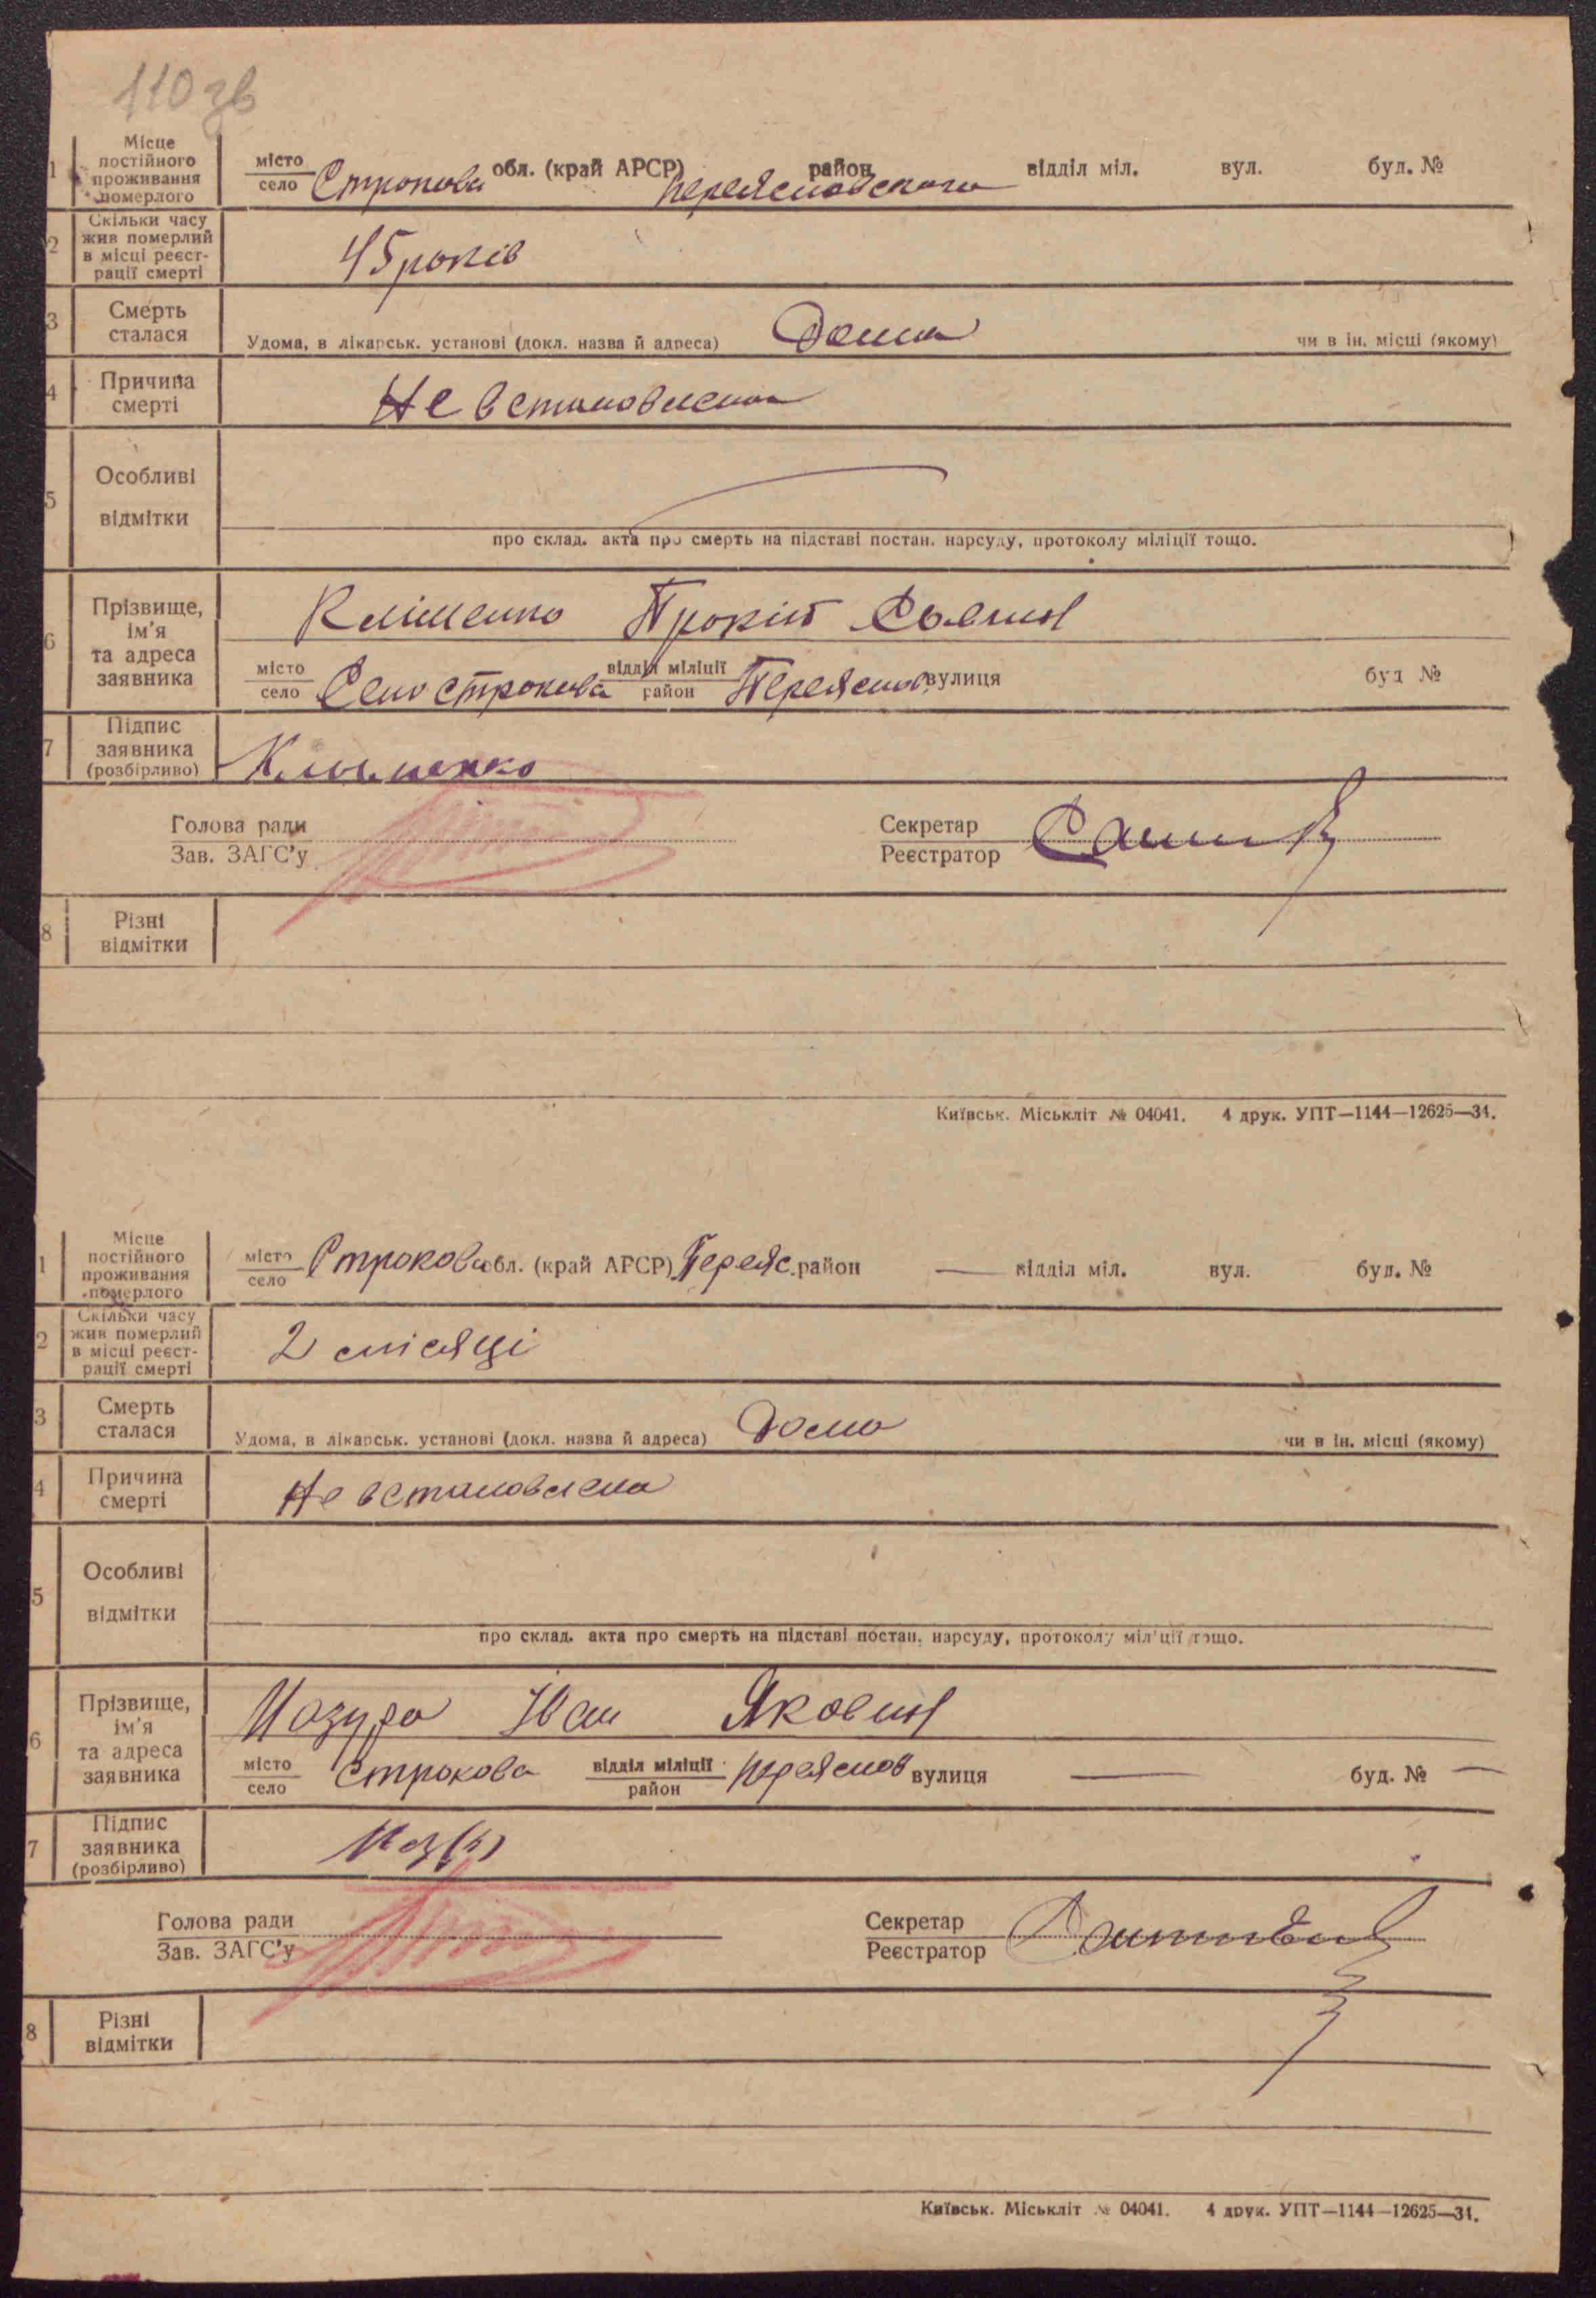 110 зв
1
Місце постійного проживання померлого
місто село Строкова обл. (край АРСР) район Переясловского відділ міл. вул. буд. №
2
Скільки часу жив померлий в місці реєстрації смерті
45 років
3
Смерть сталася
Удома, в лікарськ. установі (докл. назва й адреса) Дома чи в ін. місці (якому)
4
Причина смерті
Не встановлена
5
Особливі відмітки
про склад. акта про смерть на підставі постан. нарсуду, протоколу міліції тощо.
6
Прізвище, ім'я та адреса заявника
Кліменко Прокіп
місто село Село Строкова відділ міліції район Переяслов вулиця буд №
7
Підпис заявника (розбірливо)
Клименко
Голова ради Секретар
Зав. ЗАГС'у Реєстратор
8
Різні відмітки
Київськ. Міськліт № 04041. 4 друк. УПТ—1144—12625—34.
1
Місце постійного проживання померлого
місто село Строкова обл. (край АРСР) Переяс. район — відділ міл. вул. буд. №
2
Скільки часу жив померлий в місці реєстрації смерті
2 місяці
3
Смерть сталася
Удома, в лікарськ. установі (докл. назва й адреса) Дома чи в ін. місці (якому)
4
Причина смерті
Не встановлена
5
Особливі відмітки
про склад. акта про смерть на підставі постан. нарсуду, протоколу міліції тощо.
6
Прізвище, ім'я та адреса заявника
Мазура Іван Якович
місто село Строкова відділ міліції район Переяслов вулиця — буд. № —
7
Підпис заявника (розбірливо)
Голова ради Секретар
Зав. ЗАГС'у Реєстратор
8
Різні відмітки
Київськ. Міськліт № 04041. 4 друк. УПТ—1144—12625—34.